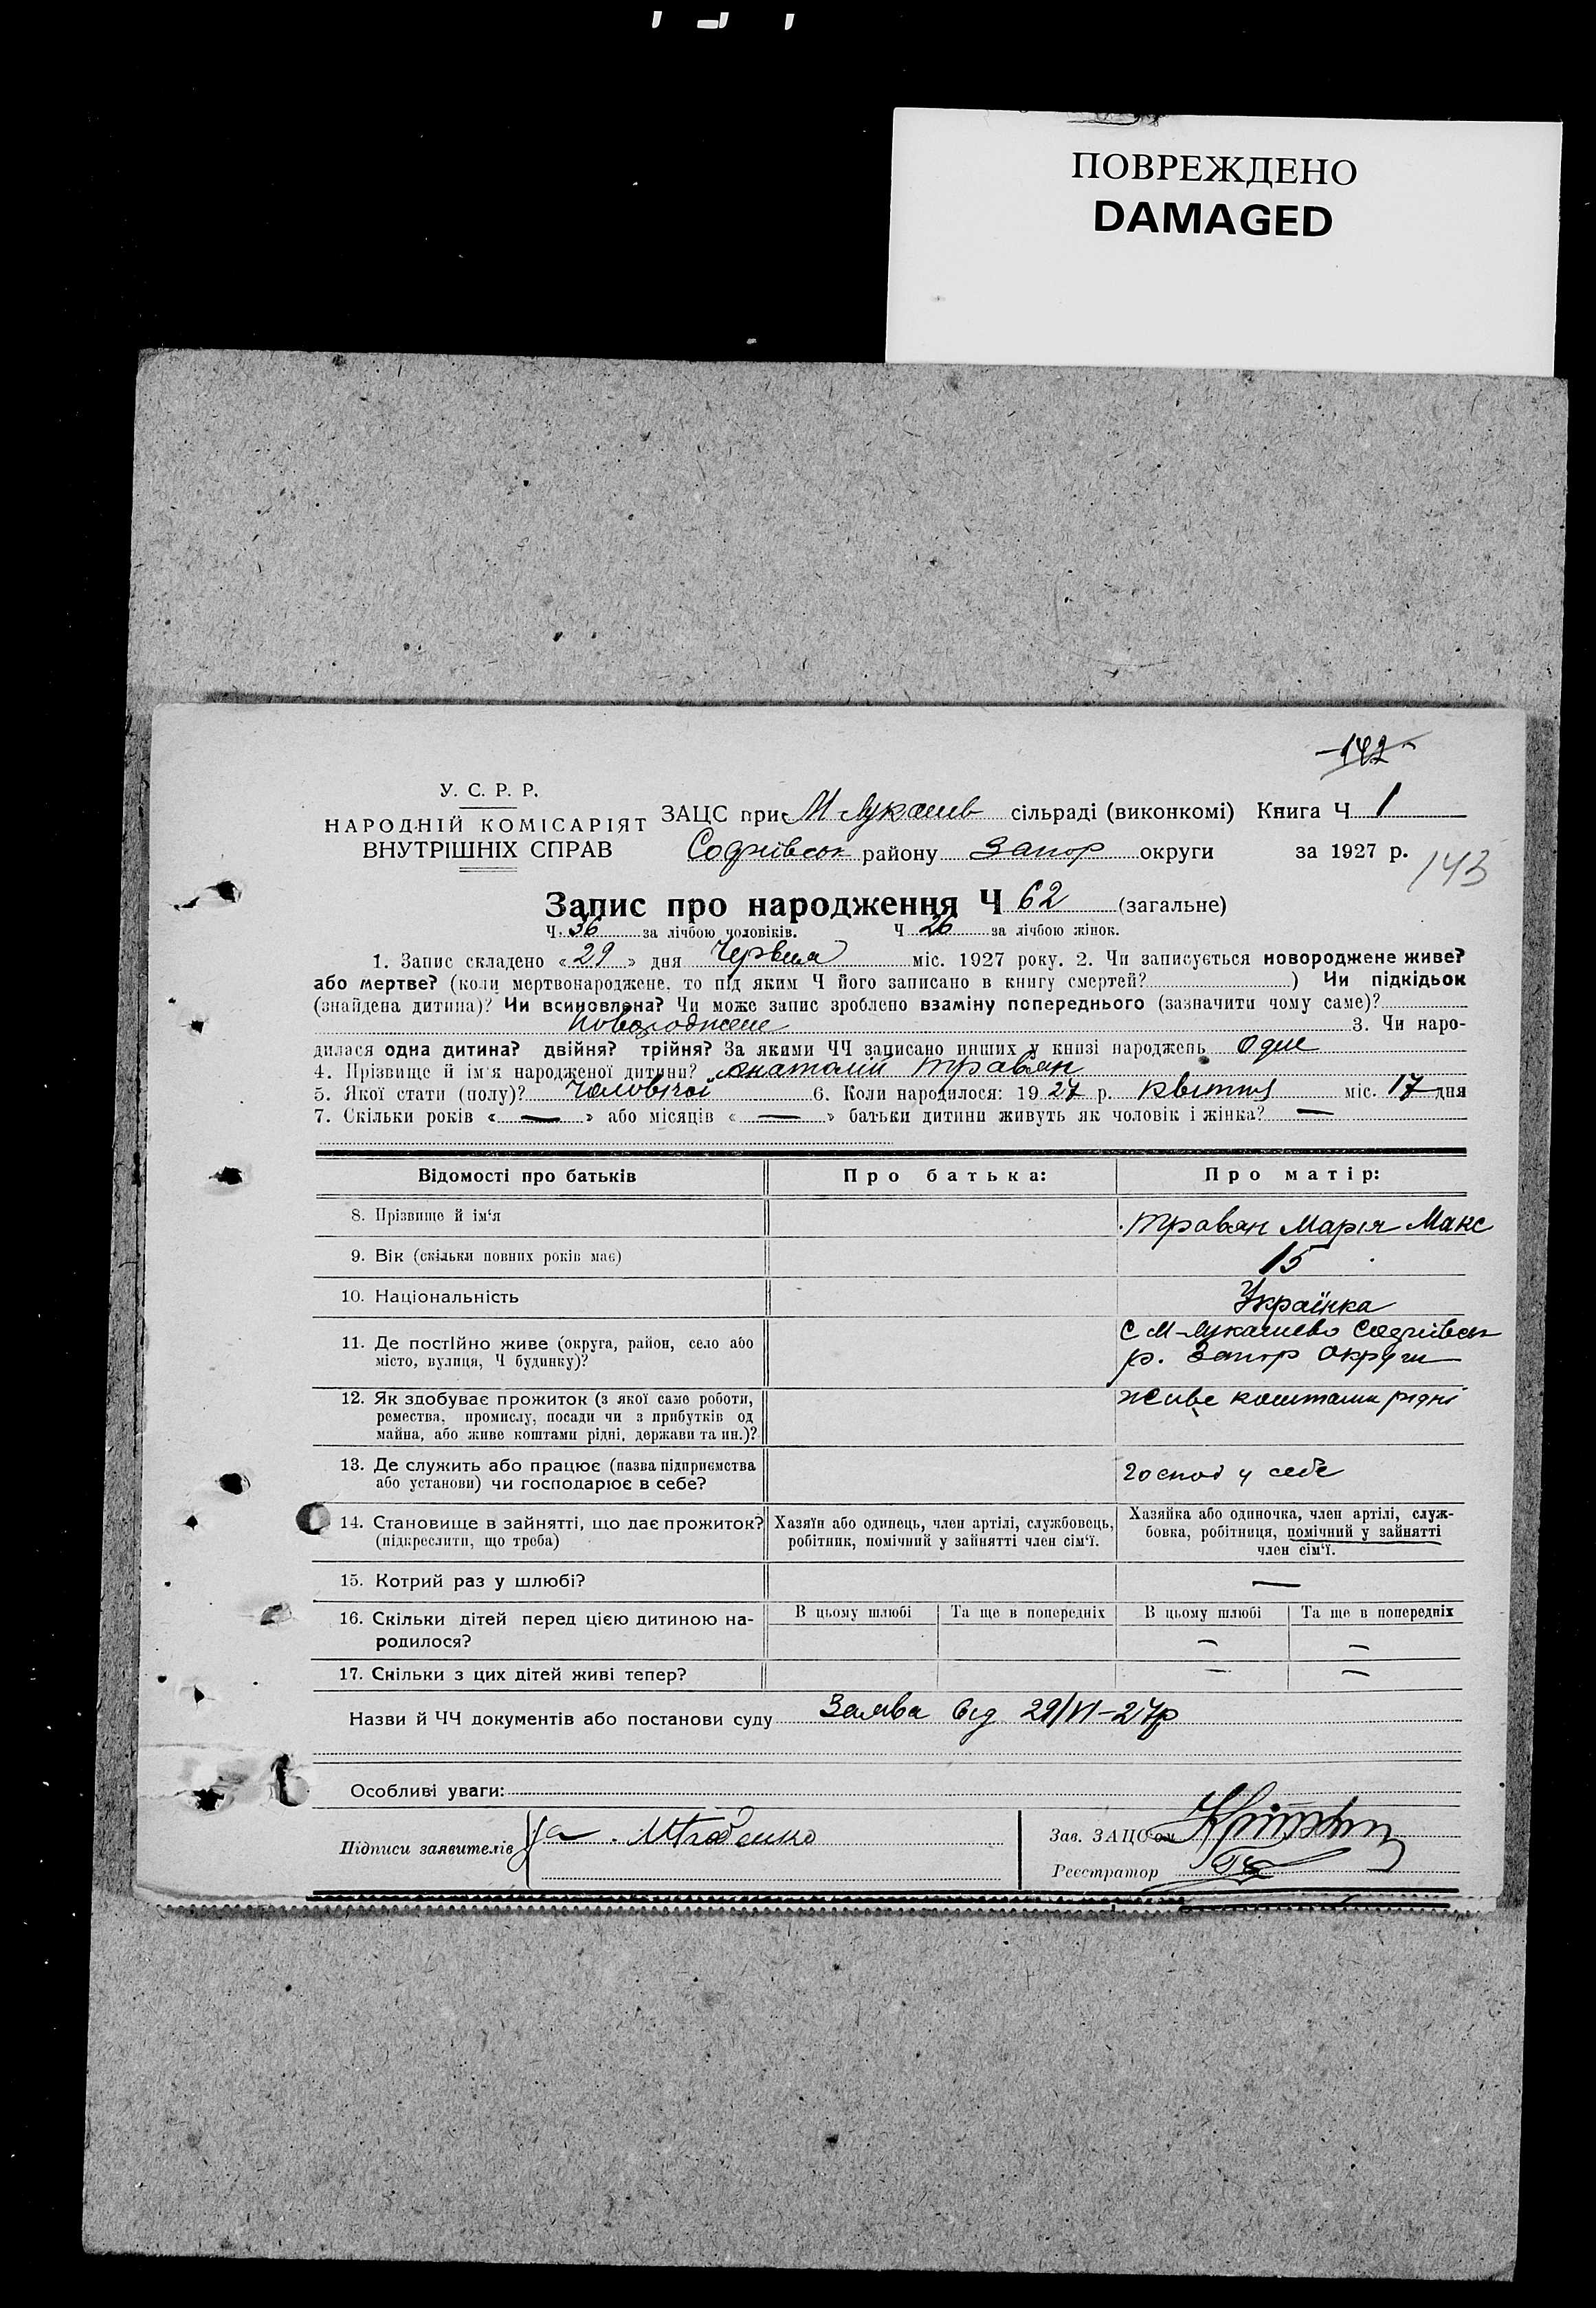 ПОВРЕЖДЕНО
DAMAGED
142
У. С. Р. Р.
НАРОДНІЙ КОМІСАРІЯТ
ВНУТРІШНІХ СПРАВ
ЗАЦС при М Лукашів сільраді (виконкомі) Книга Ч 1
Софіївськ району Запор округи за 1927 р.
143
Запис про народження Ч 62 (загальне)
Ч 36 за лічбою чоловіків. Ч 26 за лічбою жінок.
1. Запис складено «29» дня Червня міс. 1927 року. 2. Чи записується новороджене живе?
або мертве? (коли мертвонароджене, то під яким Ч його записано в книгу смертей? ) Чи підкідьок
(знайдена дитина)? Чи всиновлена? Чи може запис зроблено взаміну попереднього (зазначити чому саме)?
Новороджене 3. Чи наро-
дилася одна дитина? двійня? трійня? За якими ЧЧ записано инших у книзі народжень Одне
4. Прізвище й ім'я народженої дитини? Анатолій Травян
5. Якої стати (полу)? Чоловічої 6. Коли народилося: 1927 р. Квітня міс. 17 дня
7. Скільки років «—» або місяців «—» батьки дитини живуть як чоловік і жінка? —
Відомості про батьків Про батька: Про матір:
8. Прізвище й ім'я Травян Марія Макс
9. Вік (скільки повних років має) 15
10. Національність Українка
11. Де постійно живе (округа, район, село або С М-Лукашево Софіївськ
місто, вулиця, Ч будинку)? р. Запор Округи
12. Як здобуває прожиток (з якої саме роботи, Живе коштами рідні
ремества, промислу, посади чи з прибутків од
майна, або живе коштами рідні, держави та ин.)?
13. Де служить або працює (назва підприємства господ у себе
або установи) чи господарює в себе?
14. Становище в зайнятті, що дає прожиток? Хазяїн або одинець, член артілі, службовець, Хазяйка або одиночка, член артілі, служ-
(підкреслити, що треба) робітник, помічний у зайнятті член сім'ї. бовка, робітниця, помічний у зайнятті
член сім'ї.
15. Котрий раз у шлюбі? —
16. Скільки дітей перед цією дитиною на- В цьому шлюбі Та ще в попередніх В цьому шлюбі Та ще в попередніх
родилося? — —
17. Скільки з цих дітей живі тепер? — —
Назви й ЧЧ документів або постанови суду Заява від 29/VI-27р
Особливі уваги:
Підписи заявителів
Зав. ЗАЦС'ом
Реєстратор